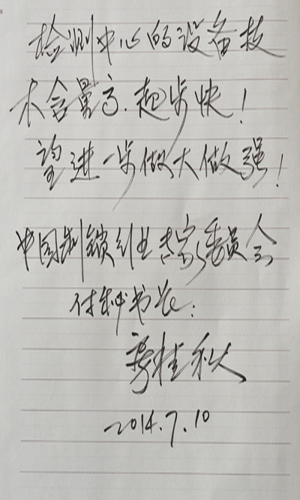 检测中心的设备技
术含量高.起步快!
望进一步做大做强!
中国制锁行业专家委员会
付秘书长:
桂秋
2014.7.10